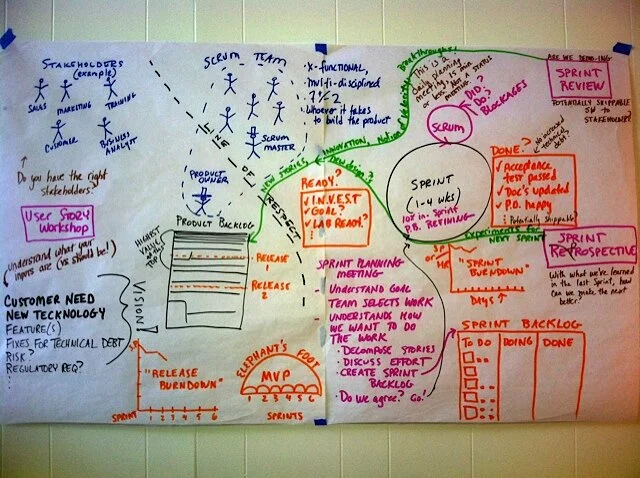 STAKEHOLDERS
(example)
SALES
MARKETING
TRAINING
CUSTOMER
BUSINESS
ANALYST
Do you have the right
stakeholders?
User Story
Workshop
understand what your
inputs are (vs should be!)
CUSTOMER NEED
NEW TECKNOLOGY
FEATURE(S)
FIXES FOR TECHNICAL DEBT
RISK?
REGULATORY REQ?
SCRUM TEAM
SCRUM
MASTER
PRODUCT
OWNER
LINE OF RESPECT
• X-FUNCTIONAL,
multi-disciplined
• 7 ± 2
• Whoever it takes
to build the product
PRODUCT BACKLOG
HIGHEST
VALUE
TOP
RELEASE
1
RELEASE
2
VISION?
"RELEASE
BURNDOWN"
SPRINT 1 2 3 4 5 6
ELEPHANT'S FOOT
MVP
1 2 3 4 5 6
SPRINTS
NEW STORIES, INNOVATION,
New design?
Breakthroughs!
READY?
✓ I.N.V.E.S.T
✓ GOAL?
✓ LAB READY?
SPRINT PLANNING
MEETING
- UNDERSTAND GOAL
- TEAM SELECTS WORK
- UNDERSTANDS HOW
WE WANT TO DO
THE WORK
• DECOMPOSE STORIES
• DISCUSS EFFORT
• CREATE SPRINT
BACKLOG
• Do we agree? Go!
This is a
daily planning
meeting! 15 min
or less. NOT A STATUS
MEETING.
DID?
DO?
BLOCKAGES
SCRUM
SPRINT
(1-4 wks)
10% in-Sprint
P.B. REFINING
DONE?
✓ Acceptance
test passed
✓ Doc's updated
✓ P.O. happy
Potentially shippable?
technical
debt
ARE WE DEMO-ING
SPRINT
REVIEW
POTENTIALLY SHIPPABLE
SW TO
STAKEHOLDERS?
EXPERIMENTS FOR
NEXT SPRINT
SPRINT
RETROSPECTIVE
With what we've learned
in the last Sprint, how
can we make the next
better?
SP
or
HR
"SPRINT
BURNDOWN"
DAYS
SPRINT BACKLOG
TO DO
DOING
DONE